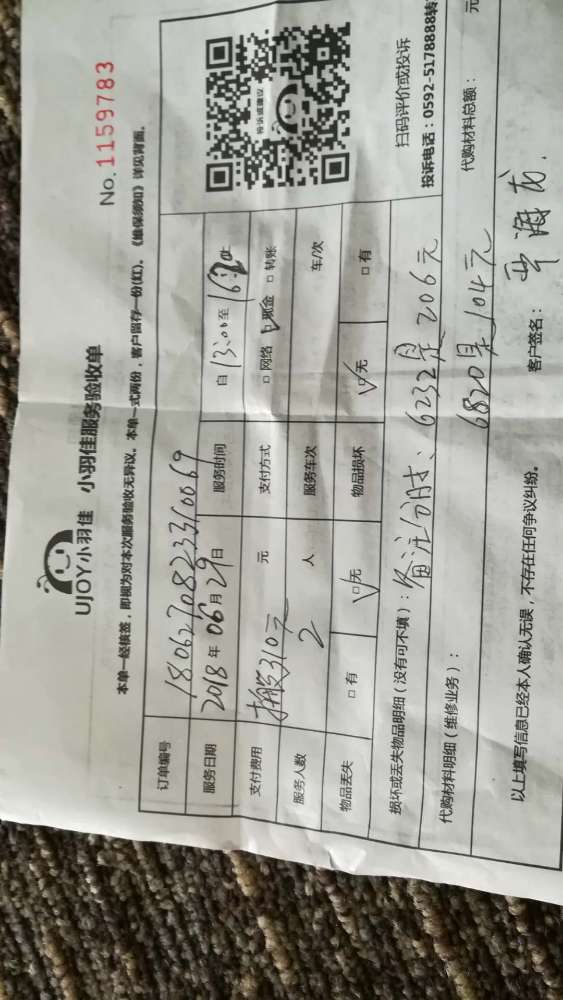 UJOY小羽佳 小羽佳服务验收单
No.1159783
本单一经核签，即视为对本次服务验收无异议。本单一式两份，客户留存一份(红)。《维保须知》详见背面。
订单编号 1806270823310069
服务日期 2018年06月29日 服务时间 自13:00至
支付费用 310元 元 支付方式 □网络 □现金 □转账
服务人数 2 人 服务车次 车/次
物品丢失 □有 □无 物品损坏 □无 □有
投诉或建议
扫码评价或投诉
投诉电话：0592-5178888转
损坏或丢失物品明细（没有可不填）：备注分时、6232是206元
代购材料明细（维修业务）： 6820是104元 代购材料总额： 元
以上填写信息已经本人确认无误，不存在任何争议纠纷。 客户签名：